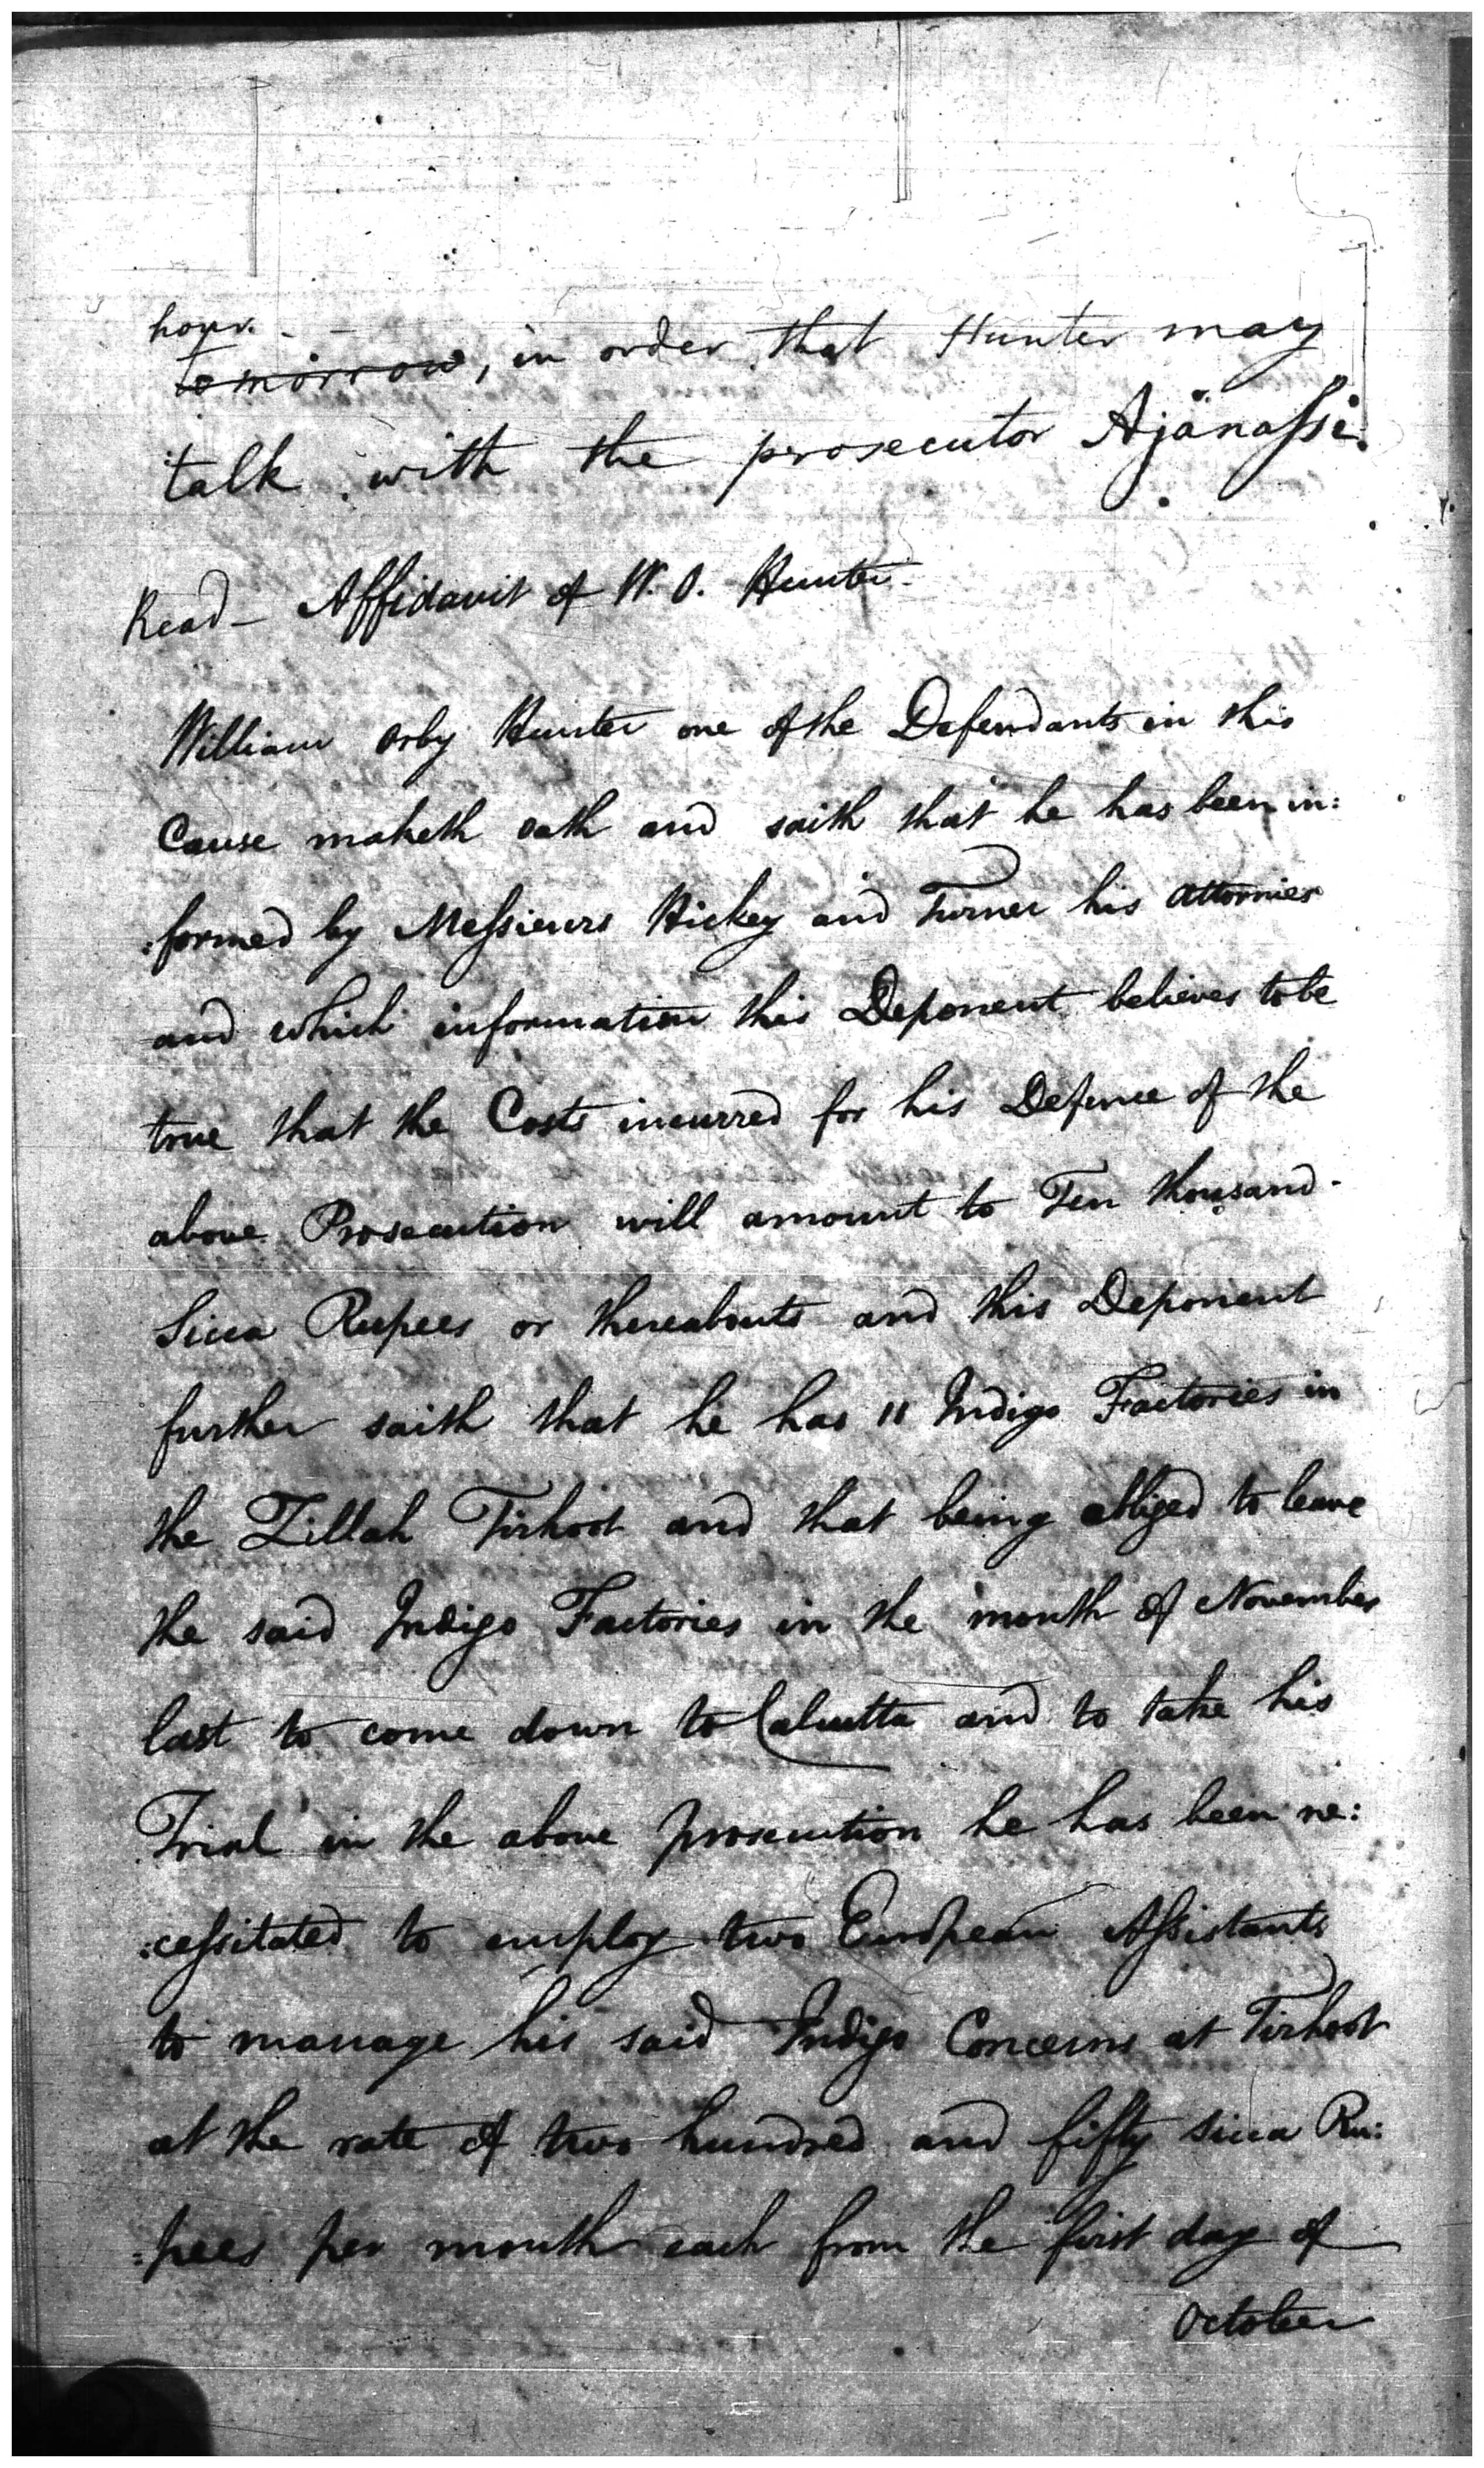 hour.
tomorrow, in order that Hunter may
talk with the prosecutor Ajänassi.
Read - Affidavit of W. O. Hunter -
William Orby Hunter one of the Defendants in this
Cause maketh oath and saith that he has been in:
:formed by Messieurs Hickey and Turner his Attornies
and which information this Deponent believes to be
true that the Costs incurred for his Defence of the
above Prosecution will amount to Ten thousand -
Sicca Rupees or thereabouts and this Deponent
further saith that he has 11 Indigo Factories in
the Zillah Tirhoot and that being obliged to leave
the said Indigo Factories in the month of November
last to come down to Calcutta and to take his
Trial in the above prosecution he has been ne:
:cessitated to employ two European Assistants
to manage his said Indigo Concerns at Tirhoot
at the rate of two hundred and fifty sicca Ru:
:pees per month each from the first day of
October